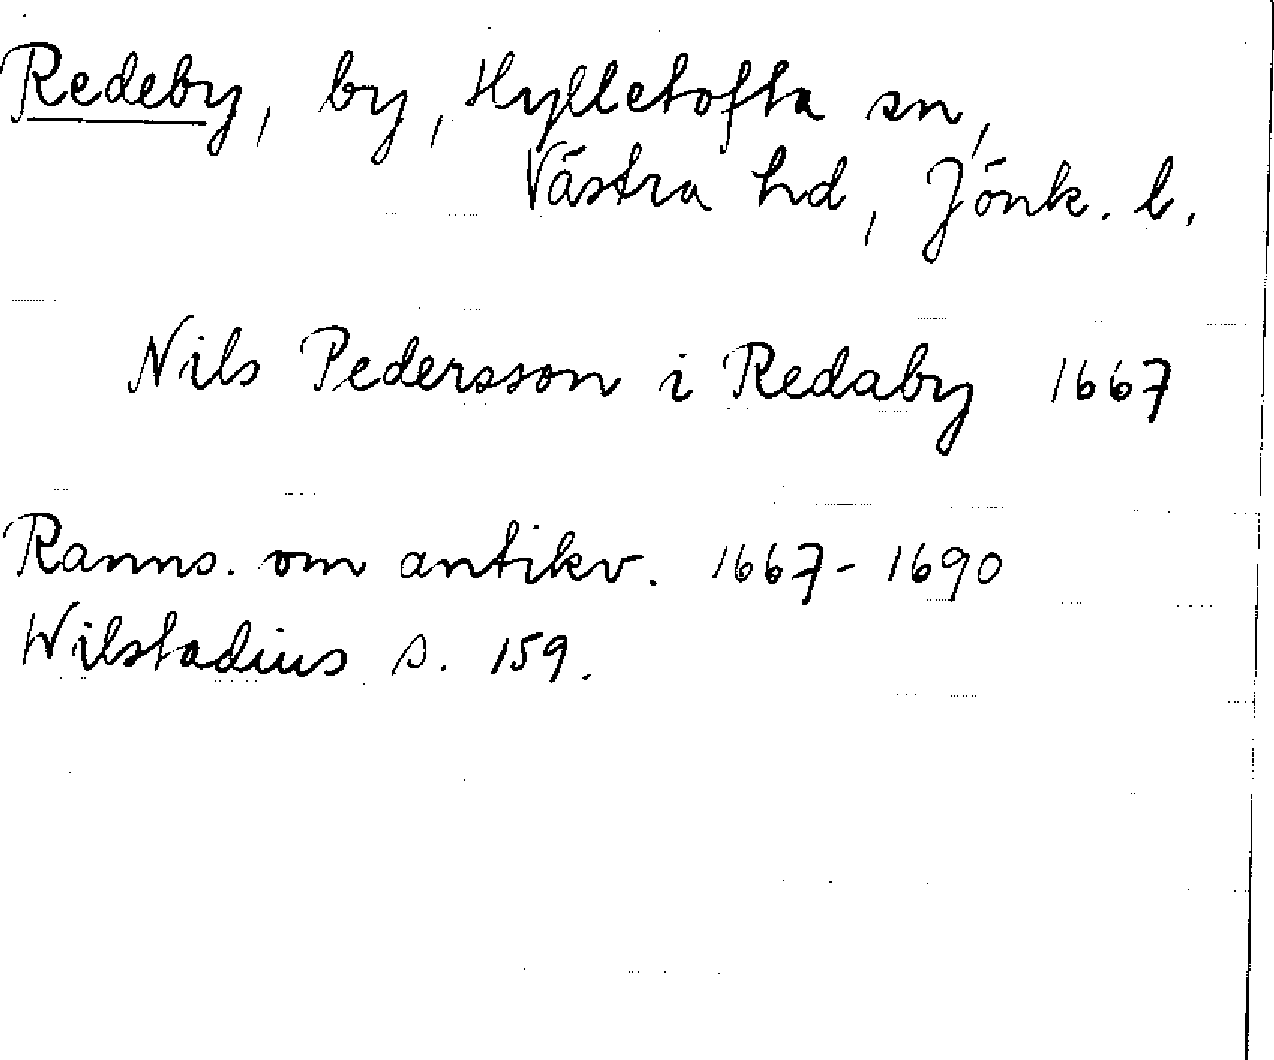 Redeby, by, Hylletofta sn,
Västra hd, Jönk. l.
Nils Pedersson i Redaby 1667
Ranns. om antikv. 1667-1690
Wilstadius s. 159.